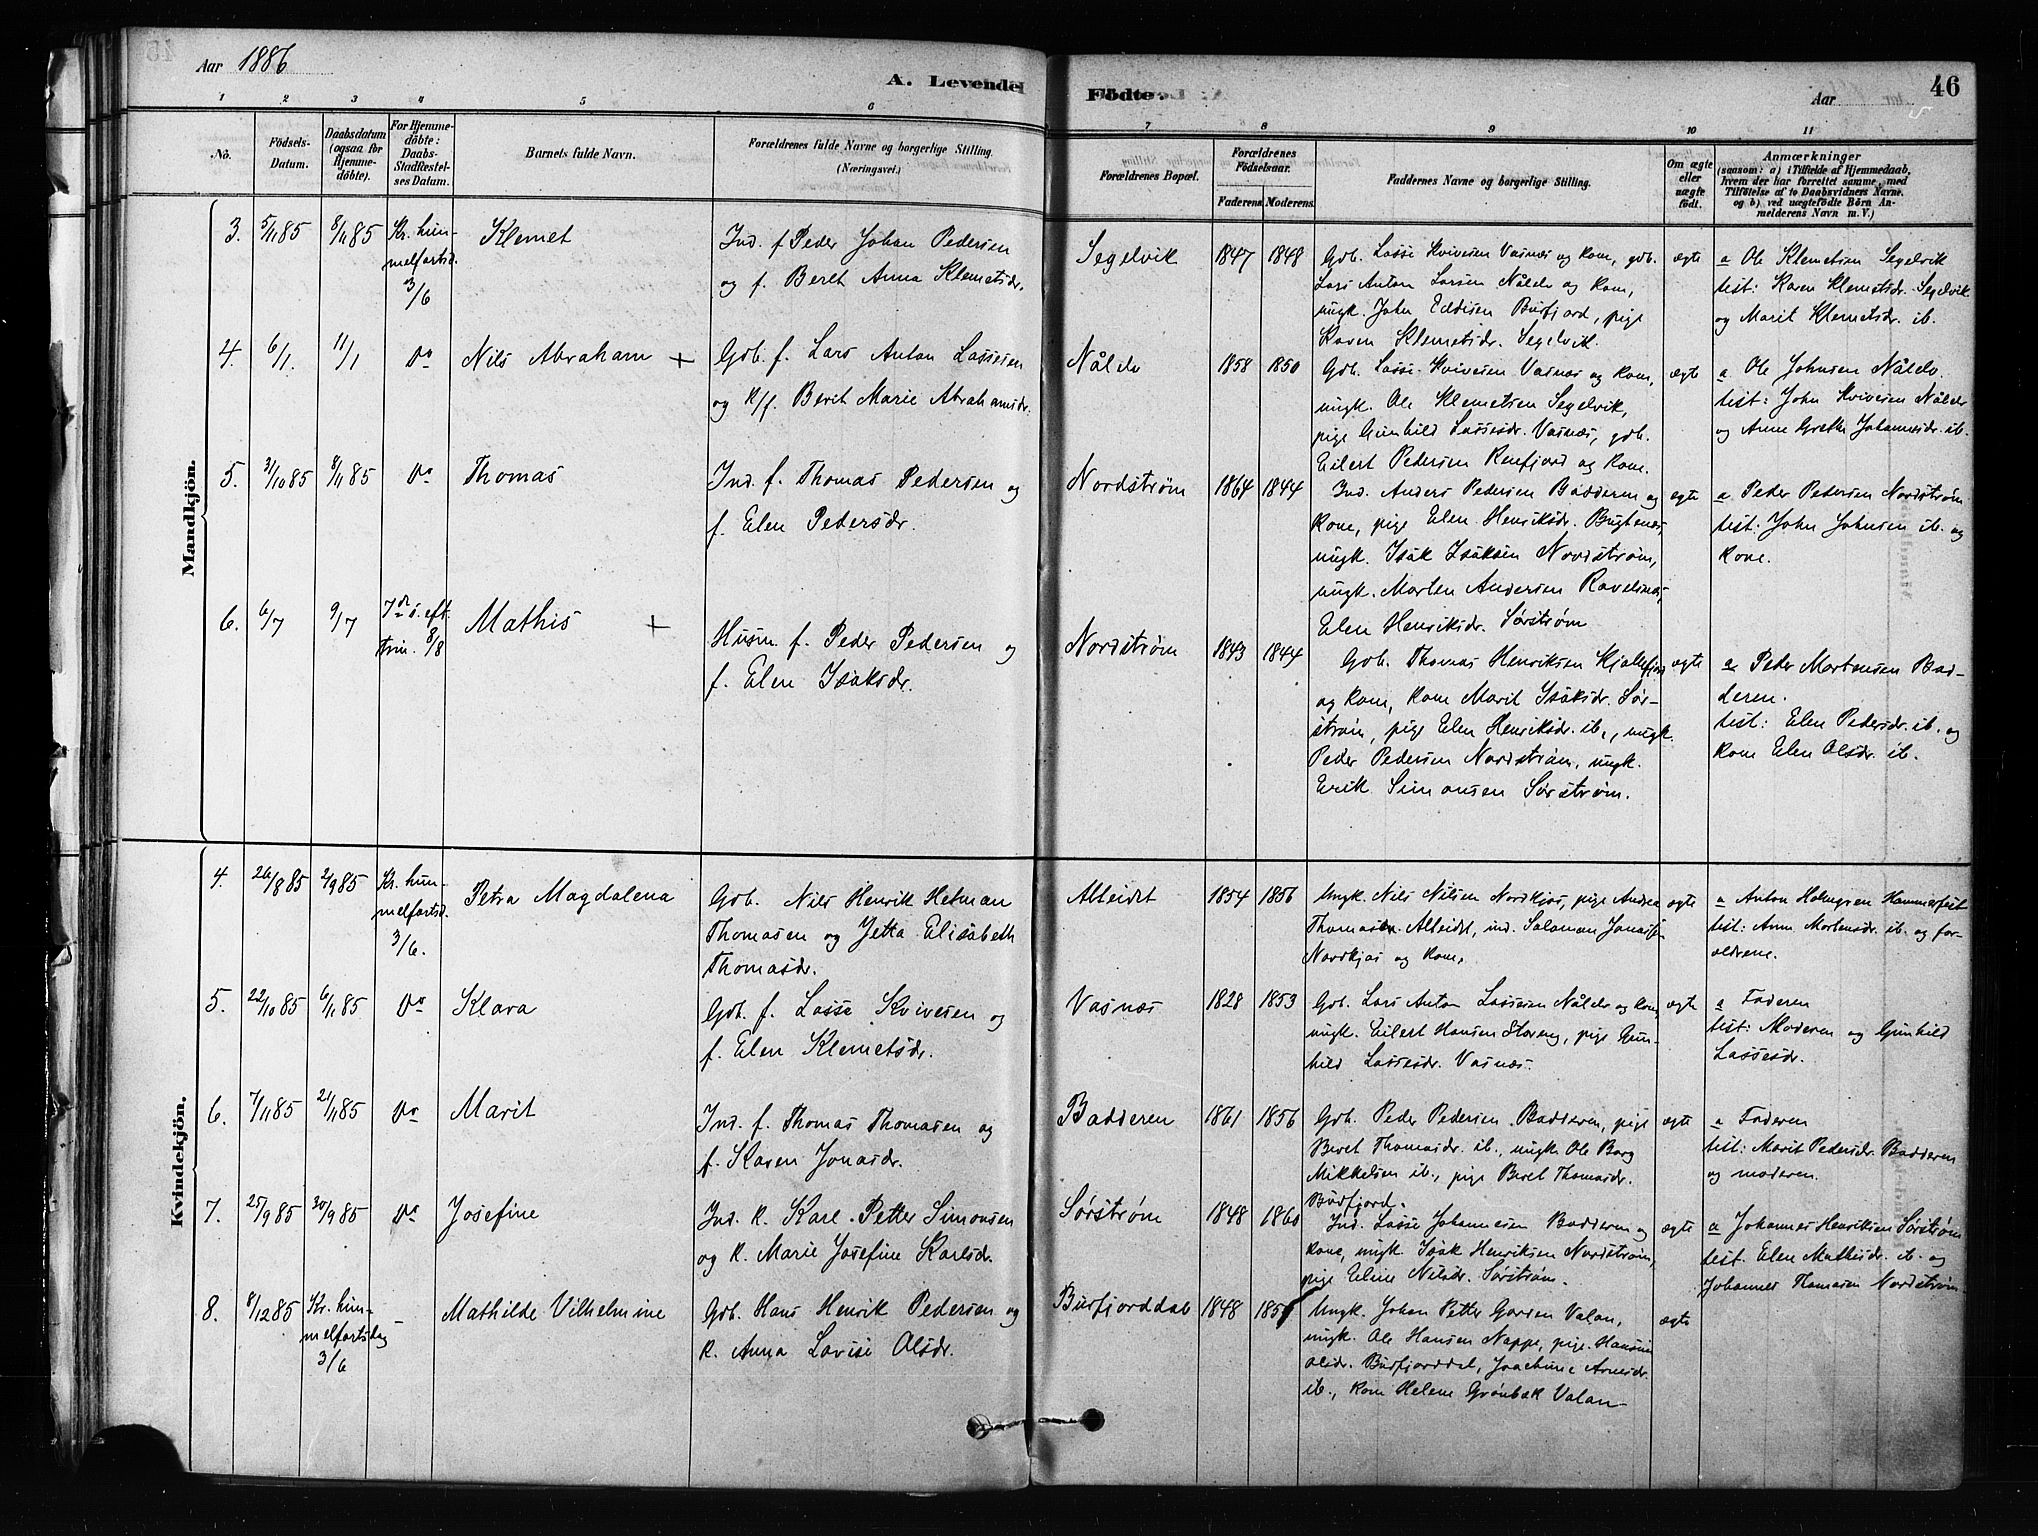 Aar 1886
A. Levende
Födte.
Aar
46
1 2 3 4 5 6 7 8 9 10 11
No.
Födsels-
Datum.
Daabsdatum
(ogsaa for
Hjemme-
döbte).
For Hjemme-
döbte:
Daabs-
Stadfæstel-
ses Datum.
Barnets fulde Navn.
Forældrenes fulde Navne og borgerlige Stilling.
(Næringsvei.)
Forældrenes Bopæl.
Forældrenes
Födselsaar.
Faderens Moderens.
Faddernes Navne og borgerlige Stilling.
Om ægte
eller
uægte
födt.
Anmærkninger
(saasom: a) i Tilfælde af Hjemmedaab,
hvem der har forrettet samme, med
Tilföielse af to Daabsvidners Navne.
og b) ved uægtefödte Börn An-
melderens Navn m. V.)
Mandkjön.
3. 5/11 85 8/11 85 Kr. him-
melfartsd.
3/6
Klemet
Ind. f Peder Johan Pedersen
og f. Beret Anna Klemetsdr.
Segelvik 1847 1848
Gdb. Lasse Kvivesen Vasnæs og kone, gdb.
Lars Anton Larsen Nåldv og kone,
ungk. John Eddisen Burfjord, pige
Karen Klemetsdr. Segelvik.
ægte
a Ole Klemetsen Segelvik
test: Karen Klemetsdr. Segelvik
og Marit Klemetsdr. ib.
4. 6/1. 11/1 Do Nils Abraham +
Gdb. f. Lars Anton Lassesen
og k/f. Berit Marie Abrahamsdr.
Nåldv 1858 1850
Gdb. Lasse Kvivesen Vasnæs og kone,
ungk. Ole Klemetsen Segelvik,
pige Gunhild Lassesdr. Vasnæs, gdb.
Eilert Pedersen Renfjord og kone.
ægte
a Ole Johnsen Nåldv.
test: John Kvivesen Nåldv
og Anne Grethe Johannesdr. ib.
5. 31/10 85 8/11 85 Do Thomas
Ind. f. Thomas Pedersen og
f. Elen Pedersdr.
Nordstrøm 1864 1844
Ind. Anders Pedersen Badderen og
kone, pige Elen Henriksdr. Bugtenes,
ungk. Isak Isaksen Nordstrøm,
ungk. Morten Andersen Ravelsnæs,
Elen Henriksdr. Sørstrøm
ægte
a. Peder Pedersen Nordstrøm
test: John Johnsen ib. og
kone.
6. 6/7 9/7 7de s. eft.
trin. 8/8
Mathis +
Husm. f. Peder Pedersen og
f. Elen Isaksdr.
Nordstrøm 1843 1844
Gdb. Thomas Henriksen Kjollefjord
og kone, kone Marit Isaksdr. Sør-
strøm, pige Elen Henriksdr. ib., ungk.
Peder Pedersen Nordstrøm, ungk.
Erik Simonsen Sørstrøm.
ægte
a. Peder Mortensen Bad-
deren.
test: Elen Pedersdr. ib. og
kone Elen Olsdr. ib.
Kvindekjön.
4. 26/8 85 2/9 85 Kr. him-
melfartsd.
3/6.
Petra Magdalena
Gdb. Nils Henrik Hetman
Thomasen og Jetta Elisabeth
Thomasdr.
Alteidet 1854 1856
Ungk. Nils Nilsen Nordkjos, pige Andrea
Thomasdr. Alteidet, ind. Salomon Jonassen
Nordkjos og kone.
ægte
a Anton Holmgren Hammerfest
test: Anne Mortensdr. ib. og for-
ældrene.
5. 22/10 85 6/11 85 Do Klara
Gdb. f. Lasse Kvivesen og
f. Elen Klemetsdr.
Vasnæs 1828 1853
Gdb. Lars Anton Lassesen Nåldv og kone,
ungk. Eilert Hansen Storeng, pige Gun-
hild Lassesdr. Vasnæs.
ægte
a Faderen
test: Moderen og Gunhild
Lassesdr.
6. 7/11 85 21/11 85 Do Marit
Ind. f. Thomas Thomasen og
f. Karen Jonasdr.
Badderen 1861 1856
Gdb. Peder Pedersen Badderen, pige
Beret Thomasdr. ib., ungk. Ole Borg
Mikkelsen ib., pige Beret Thomasdr.
Burfjord.
ægte
a Faderen
test: Marit Pedersdr. Badderen
og moderen.
7. 25/9 85 30/9 85 Do Josefine
Ind. k. Karl Petter Simonsen
og k. Marie Josefine Karlsdr.
Sørstrøm 1848 1860
Ind. Lasse Johannesen Badderen og
kone, ungk. Isak Henriksen Nordstrøm,
pige Eline Nilsdr. Sørstrøm.
ægte
a Johannes Henriksen Sørstrøm
test. Elen Mathisdr. ib. og
Johannes Thomasen Nordstrøm.
8. 8/12 85 Kr. him-
melfartsdag
3/6
–
Mathilde Vilhelmine
Gdb. Hans Henrik Pedersen og
k. Anna Lovise Olsdr.
Burfjorddal 1848
Ungk. Johan Petter Garden Valan,
ungk. Ole Hansen Nappe, pige Hansine
Olsdr. Burfjorddal, Joachime Arnesdr.
ib., kone Helene Grønbæk Valan
ægte